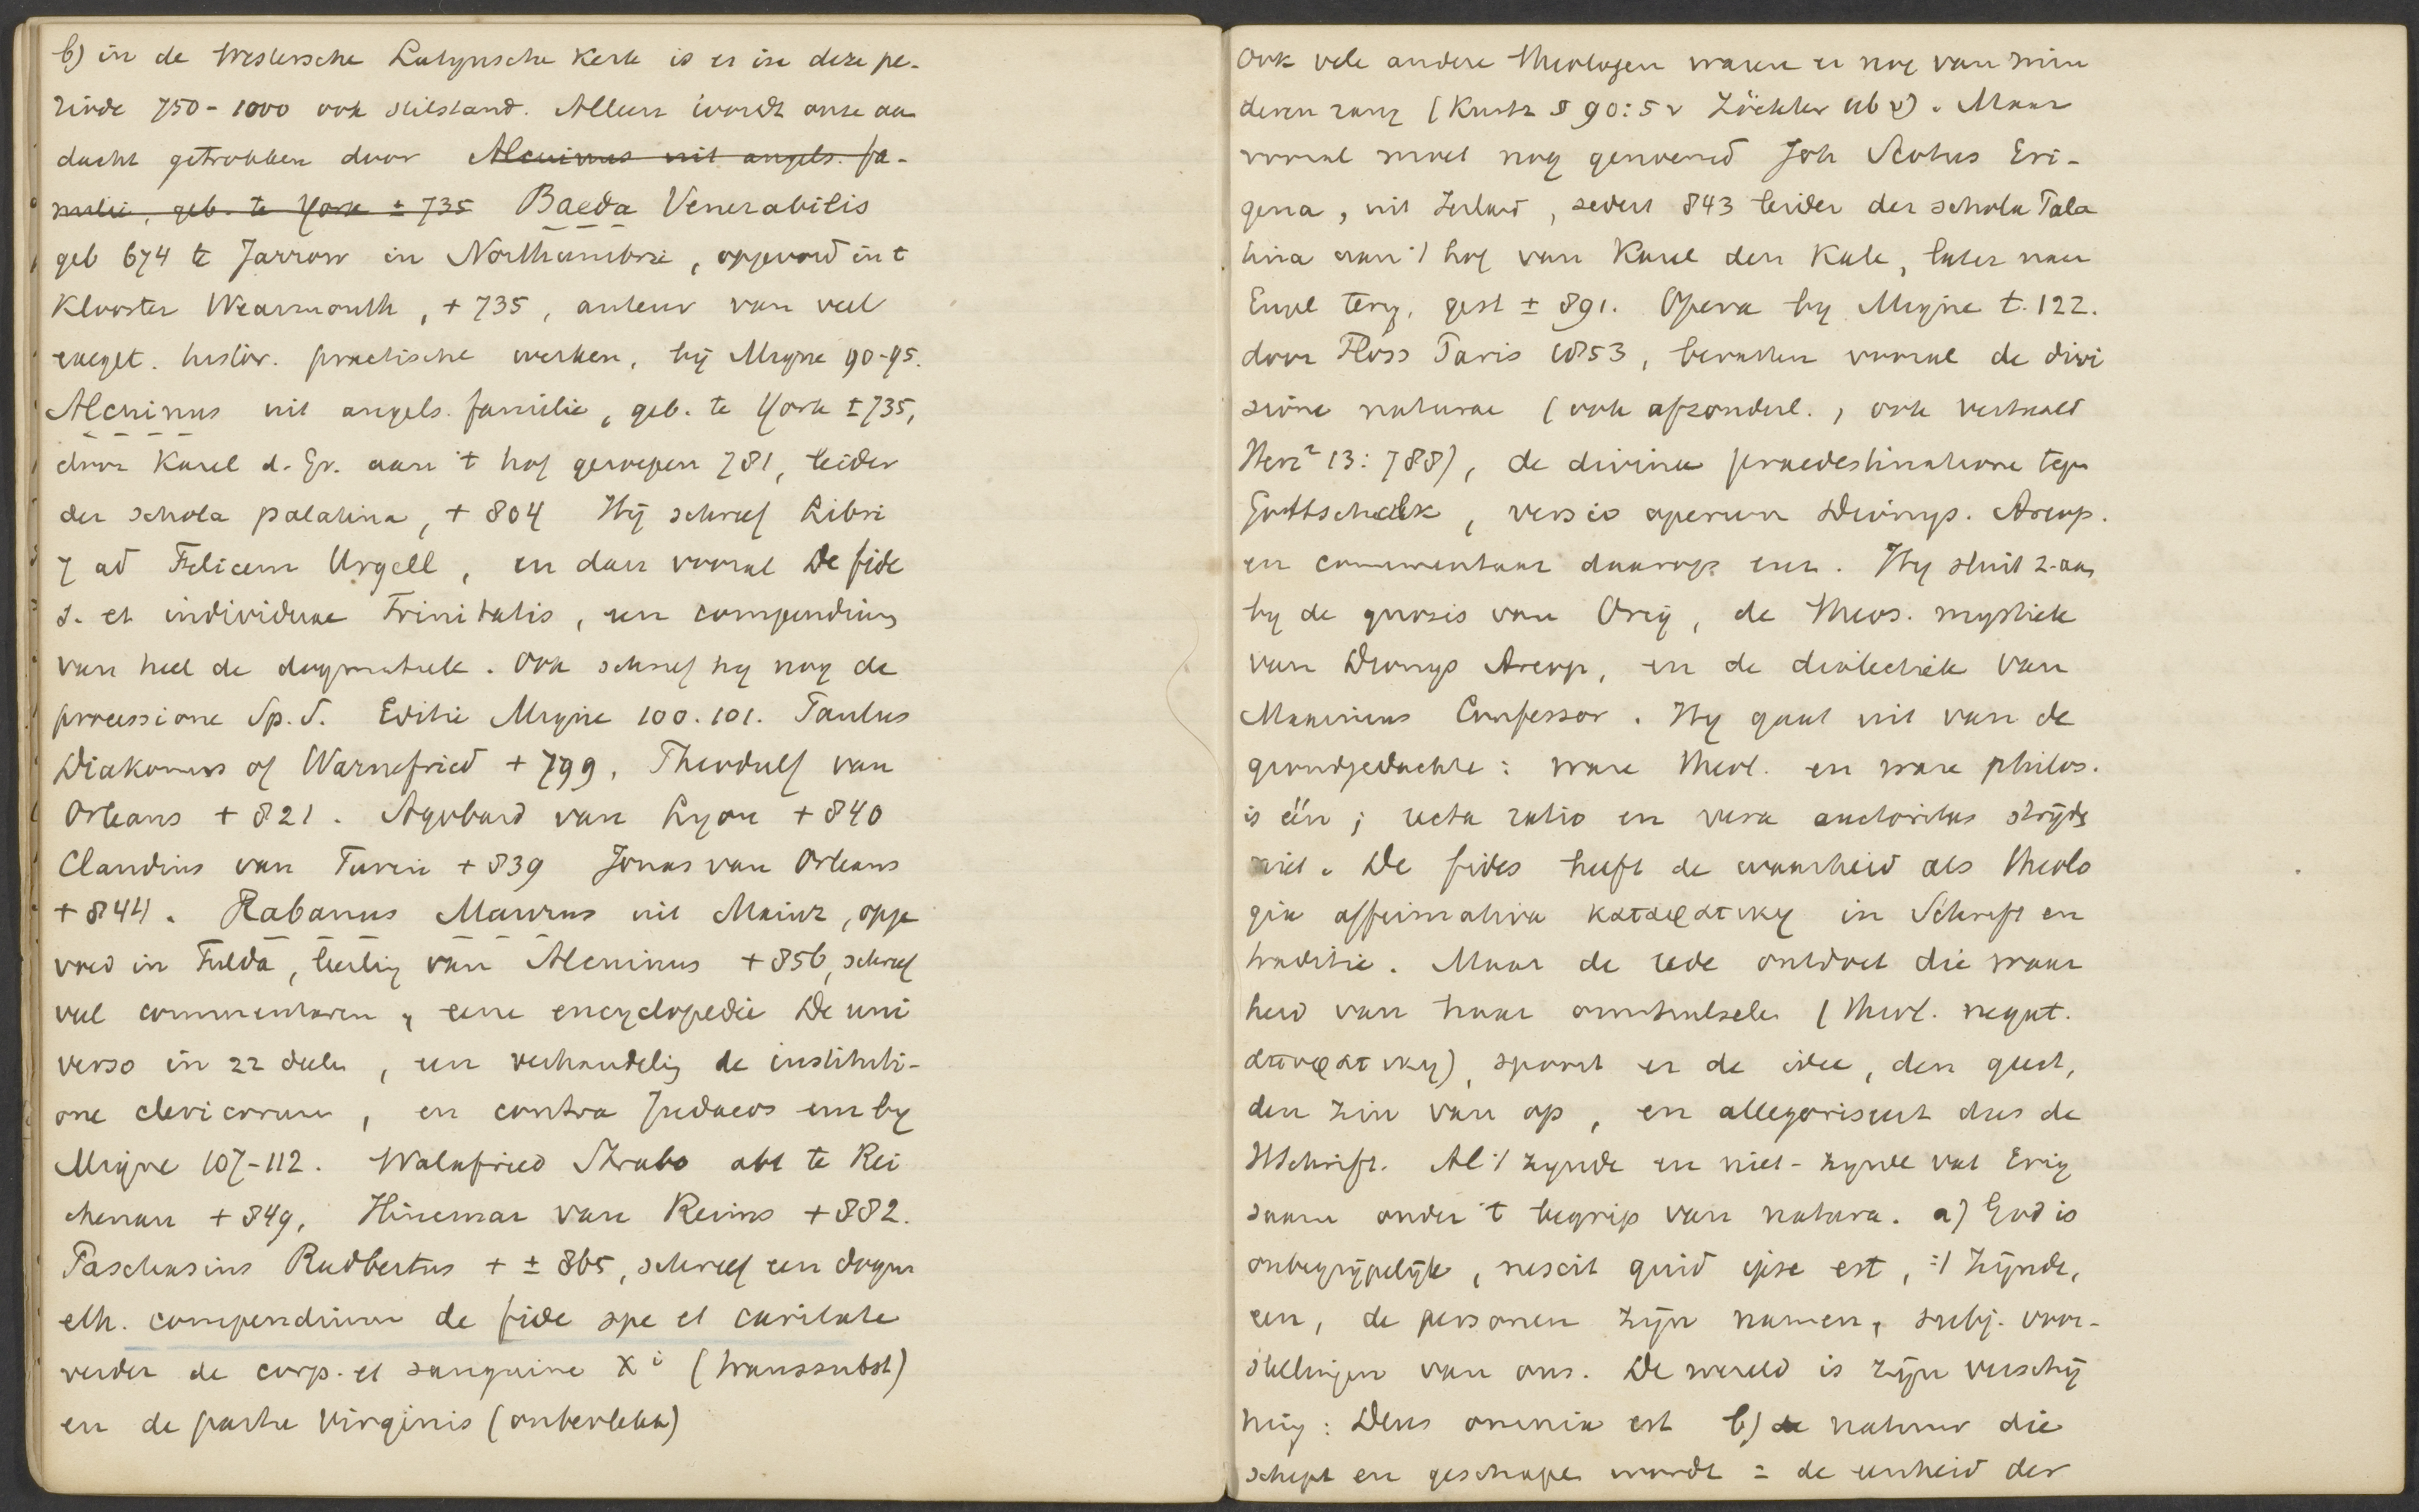 b) in de Westersche Latynsche Kerk is er in deze pe-
riode 750-1000 ook stilstand. Alleen wordt onze aan
dacht getrokken door Alcuinus uit angels. fa-
milie, geb. te York ± 735 Baeda Venerabilis
geb 674 te Jarrow in Northumbrie, opgevoed in t
Klooster Wearmouth, + 735, auteur van veel
exeget. histor. practische werken, bij Migne 90-95.
Alcuinus uit angels. familie, geb. te York ± 735,
door Karel d. Gr. aan 't hof geroepen 781, leider
der schola palatina, + 804 Hij schreef Libri
7 ad Felicem Urgell, en dan vooral De fide
s. et individuae Trinitatis, een compendium
van heel de dogmatiek. Ook schreef hy nog de
processione Sp. S. Editie Migne 100.101. Paulus
Diakonus of Warnefried + 799, Theodulf van
Orleans + 821. Agobard van Lyon + 840
Claudius van Turin + 839 Jonas van Orleans
+ 844. Rabanus Maurus uit Mainz, opge
voed in Fulda, leerling van Alcuinus + 856, schreef
veel commentaren, eene encyclopedie De uni
verso in 22 deelen, een verhandeling de instituti-
one clericorum, en contra Judaeos enz by
Migne 107-112. Walafried Strabo abt te Rei
chenau + 849, Hincmar van Reims + 882.
Paschasius Radbertus + ± 865, schreef een dogm
eth. compendium de fide spe et caritate
verder de corp. et sanguine Xi (transsubst)
en de partu Virginis (onbevlekt)
Ook vele andere theologen waren er nog van min
deren rang (Kurtz § 90:5 v Zöckler ub v). Maar
vooral moet nog genoemd Joh Scotus Eri-
gena, uit Ierland, sedert 843 leider der schola Pala
tina aan 't hof van Karel den Kale, later naar
Engel terug, gest ± 891. Opera by Migne t. 122.
door Floss Paris 1853, bevatten vooral de divi
sione naturae (ook afzonderl., ook vertaald
Herz² 13:788), de divina praedestinatione tegen
Gottschalk, versio operum Dionys. Areop.
en commentaar daarop enz. Hy sluit z. aan
by de gnosis van Orig, de theos. mystiek
van Dionys Areop, en de dialectiek van
Maximus Confessor. Hy gaat uit van de
grondgedachte: ware theol. en ware philos.
is één; recta ratio en vera auctoritas strijdt
niet. De fides heeft de waarheid als theolo
gia affirmativa καταφατικη in Schrift en
traditie. Maar de rede ontdoet die waar
heid van haar omhulselen (theol. negat.
αποφατικη), spoort er de idee, den geest,
den zin van op, en allegoriseert dus de
HSchrift. Al 't zynde en niet-zynde vat Erig
saam onder 't begrip van natura. a) God is
onbegrijpelijk, nescit quid ipse est, 't Zijnde,
een, de personen zijn namen, subj. voor-
stellingen van ons. De wereld is zijn verschij
ning: Deus omnia est b) de natuur die
schept en geschapen wordt = de eenheid der